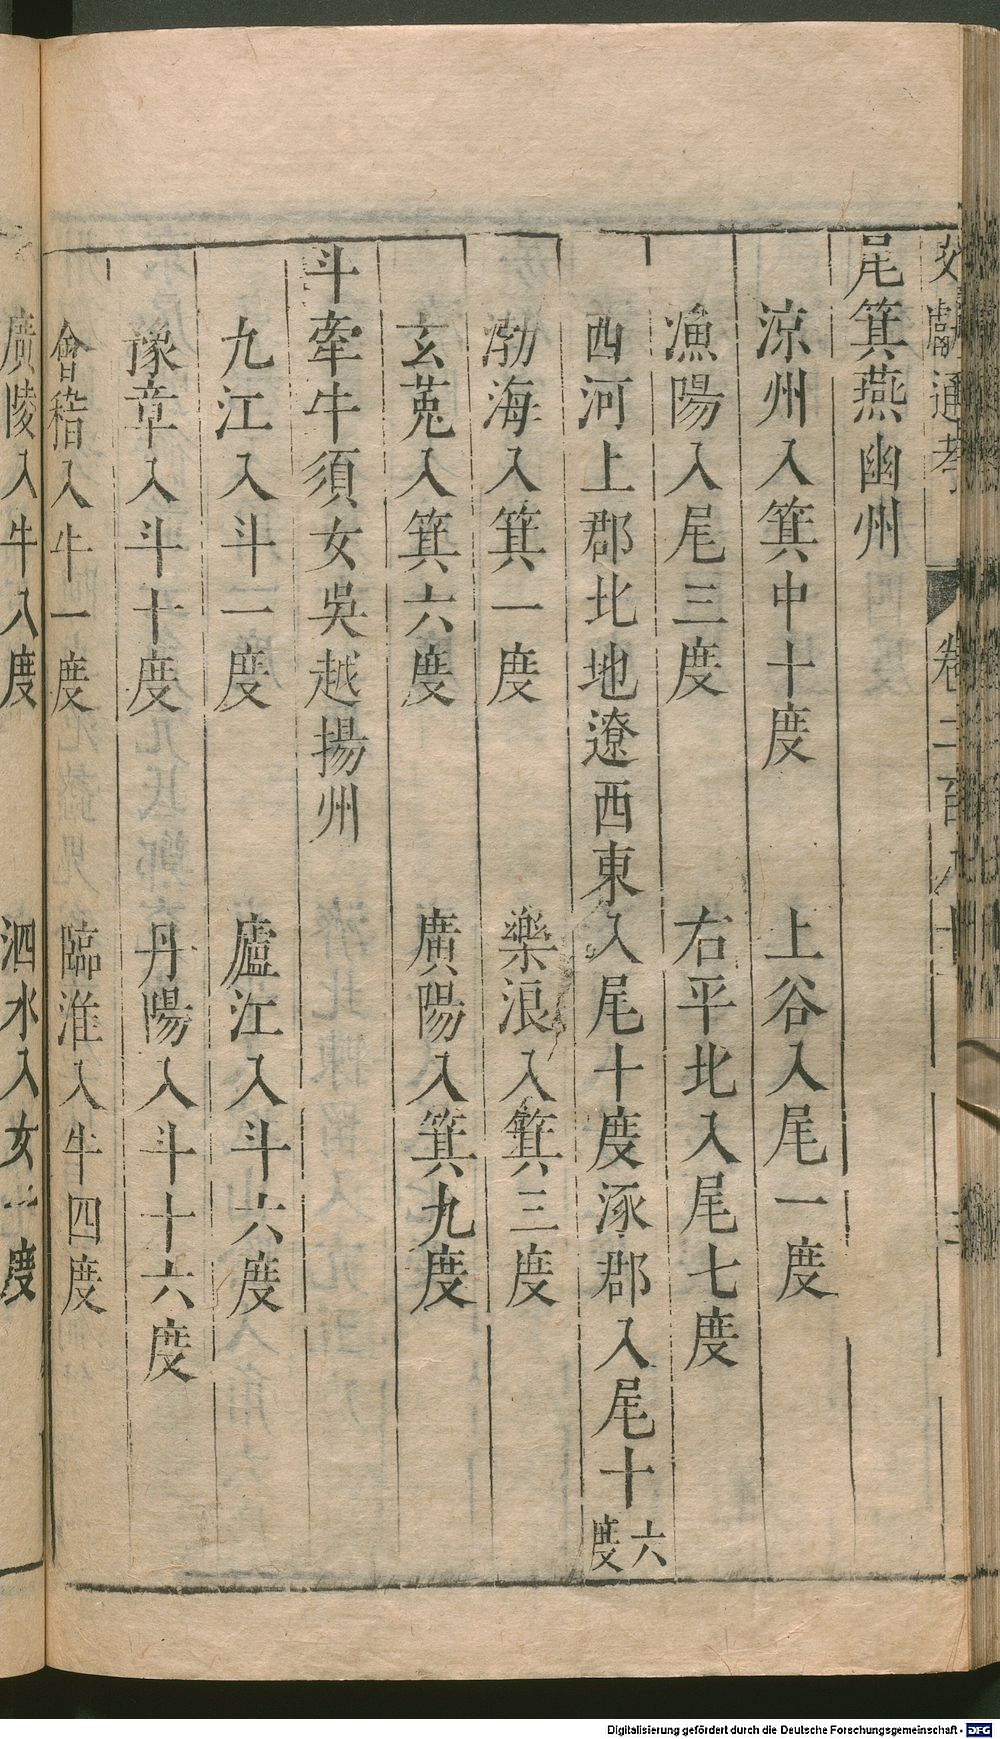 文獻通考 卷二百八十 三
尾箕燕幽州
涼州入箕中十度 上谷入尾一度
漁陽入尾三度 右平北入尾七度
西河上郡北地遼西東入尾十度涿郡入尾十六度
渤海入箕一度 樂浪入箕三度
玄菟入箕六度 廣陽入箕九度
斗牽牛須女吳越揚州
九江入斗一度 廬江入斗六度
豫章入斗十度 丹陽入斗十六度
會稽入牛一度 臨淮入牛四度
廣陵入牛八度 泗水入女一度
Digitalisierung gefördert durch die Deutsche Forschungsgemeinschaft - DFG